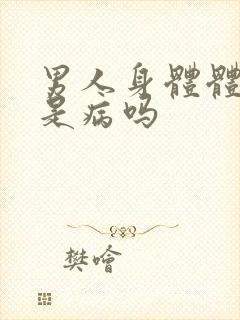 男人身體體
是病吗
樊噲